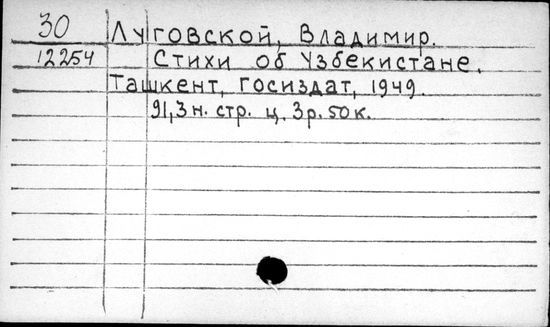 30 Луговской, Владимир.
12254 Стихи об Узбекистане.
Ташкент, Госиздат, 1949.
91,3 н. стр. ц. 3 р. 50 к.